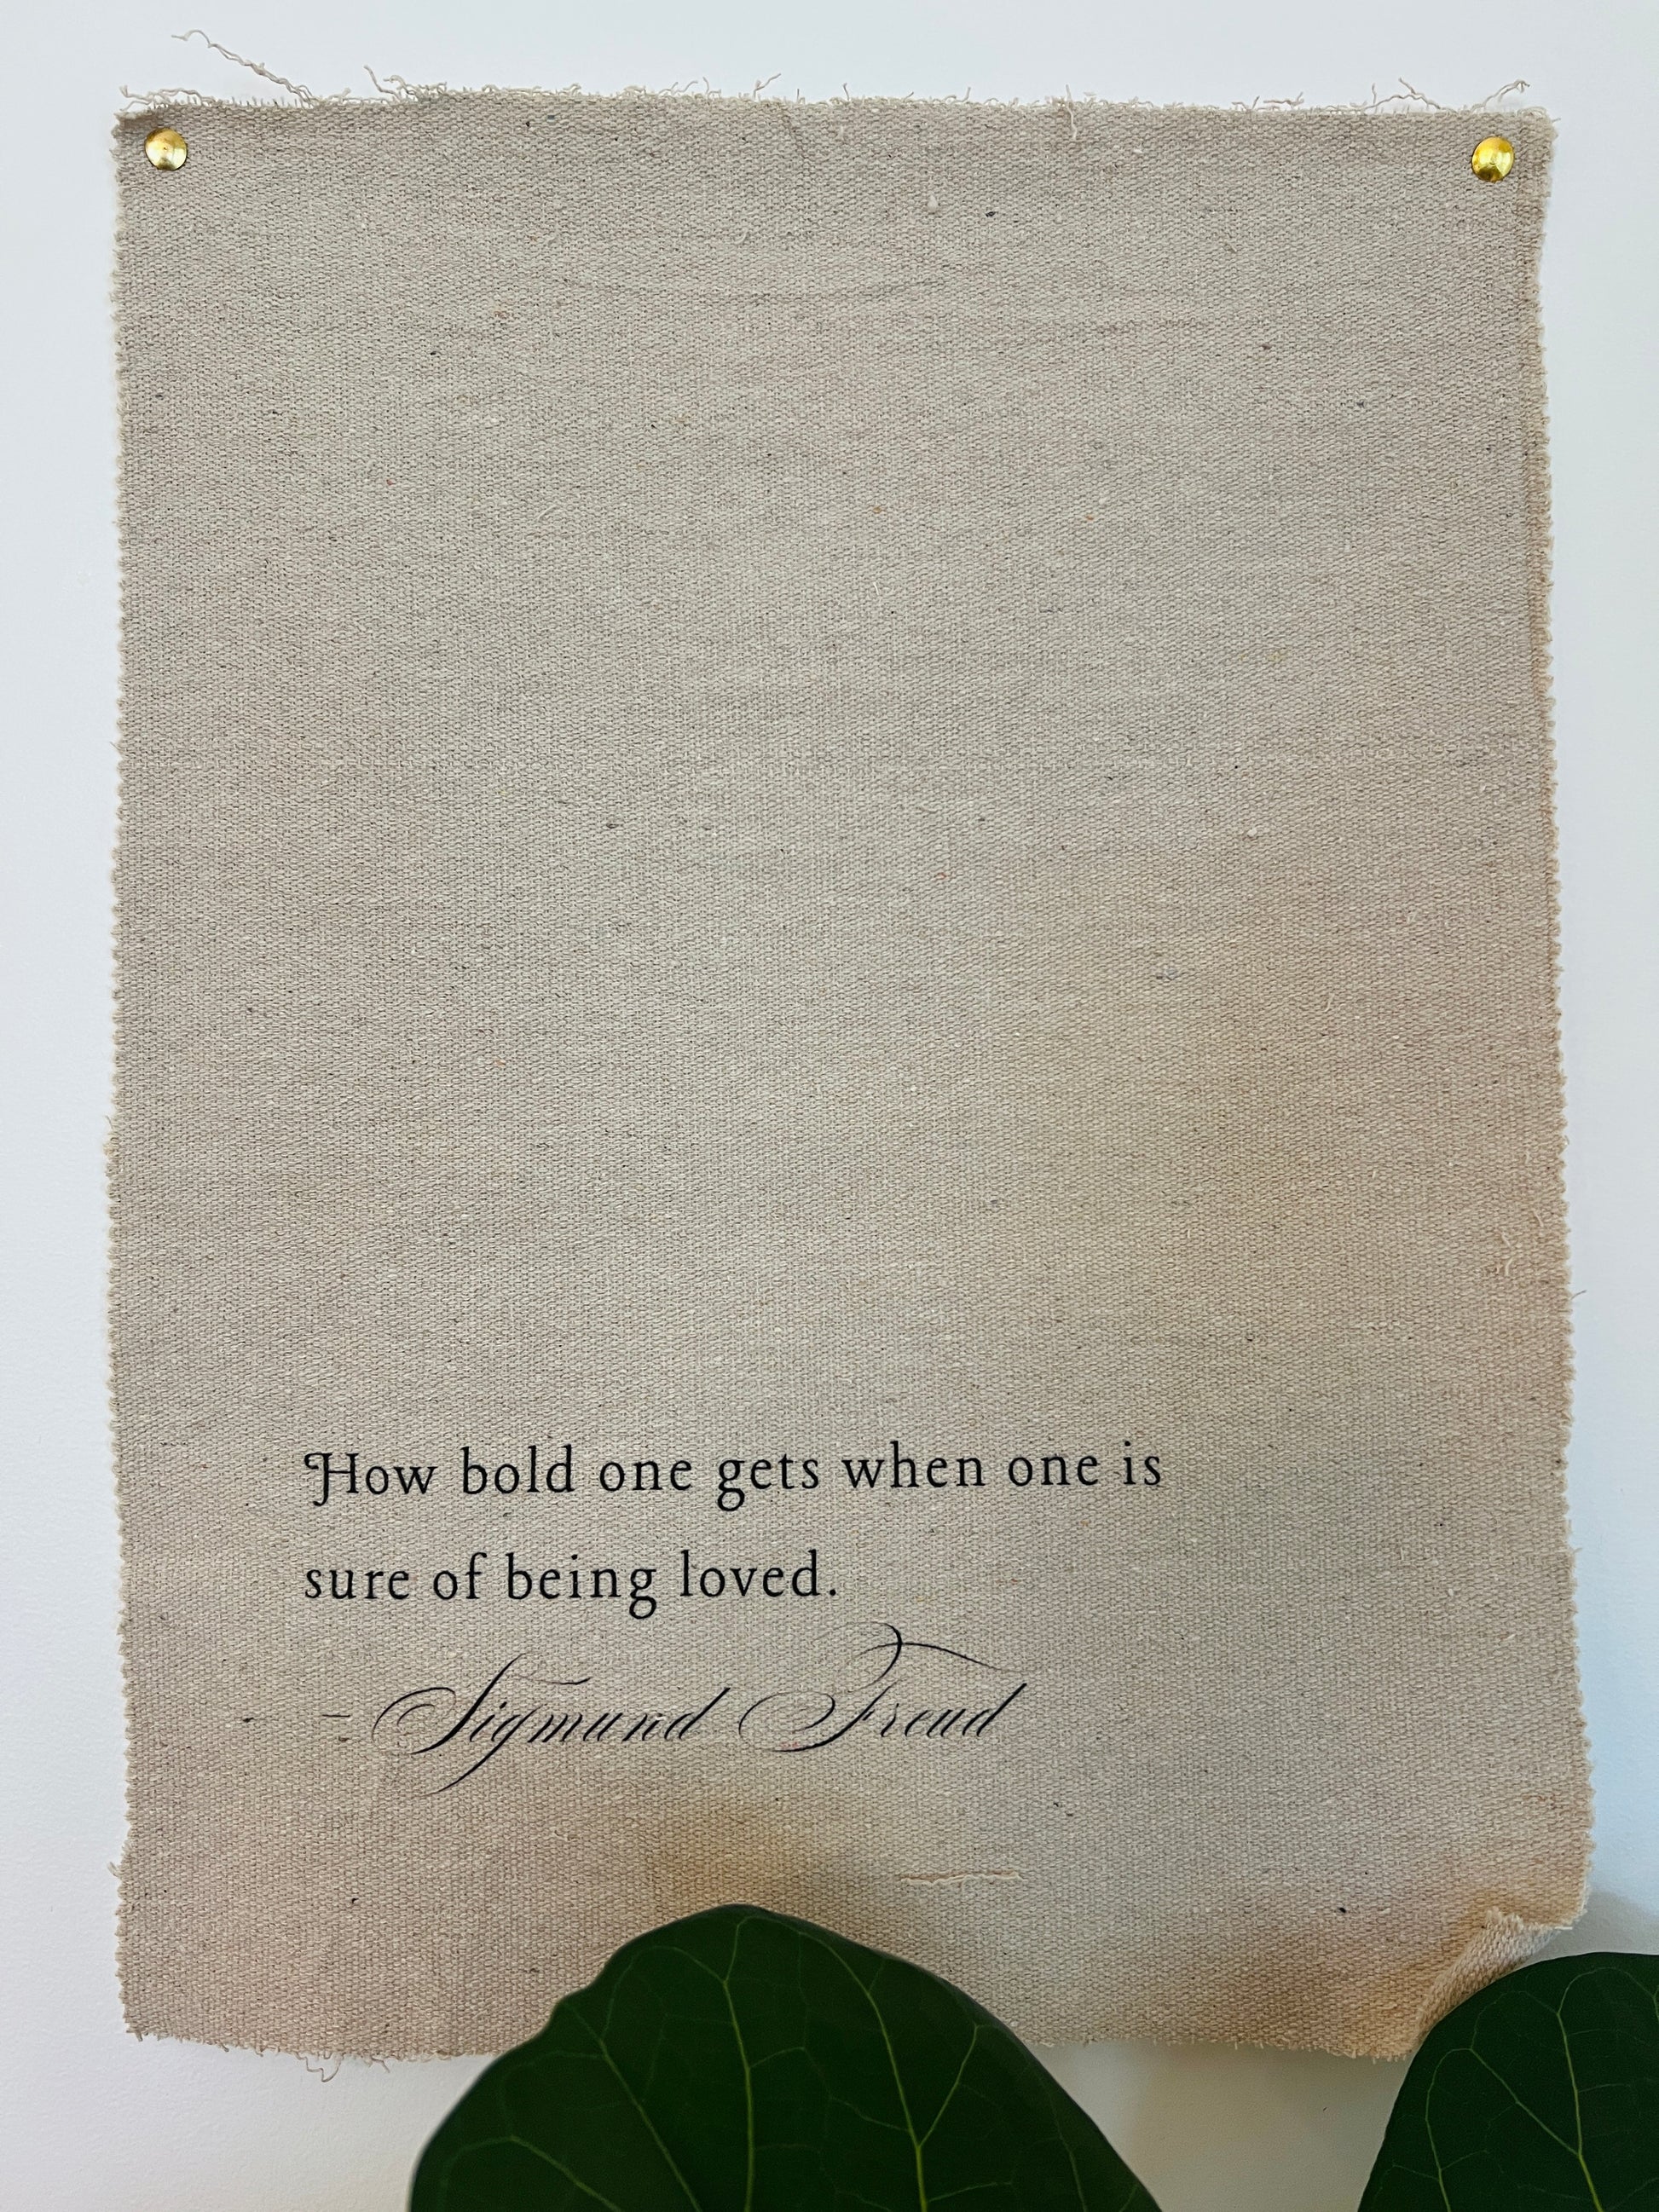 How bold one gets when one is
sure of being loved.
– Sigmund Freud